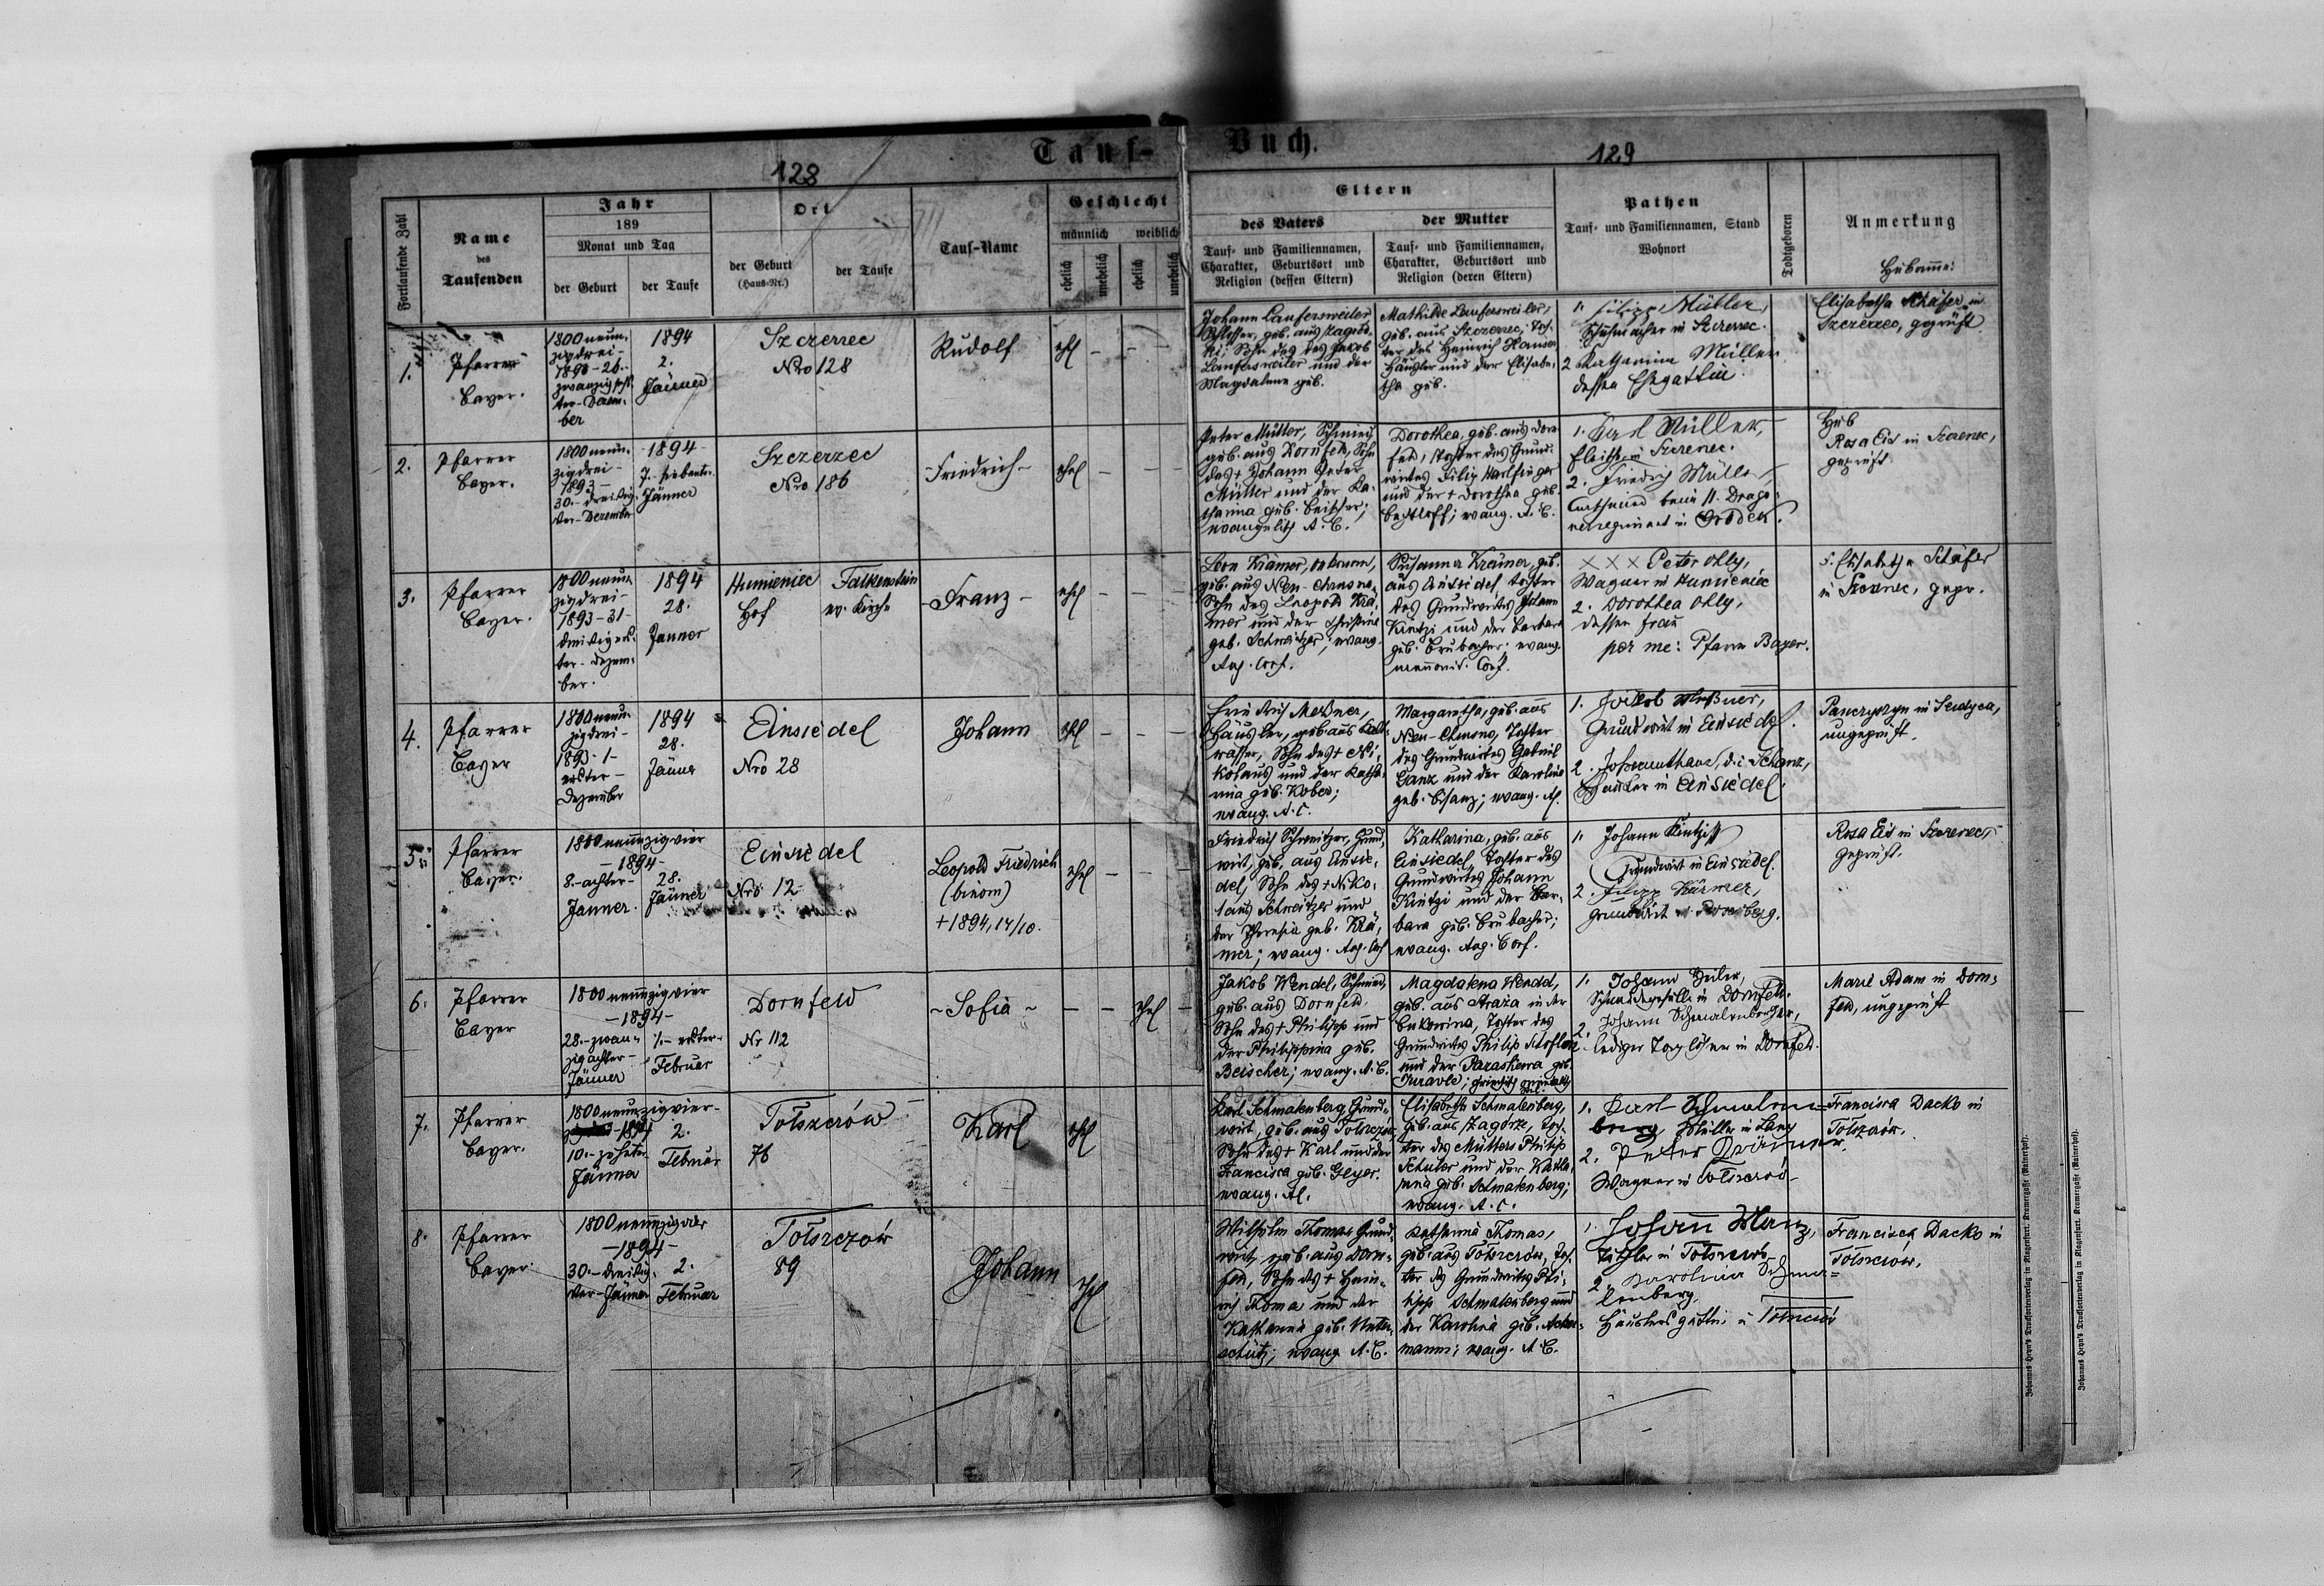 128
Tauf-
Buch.
129
Fortlaufende Zahl
Name
des
Taufenden
Jahr
189
Monat und Tag
der Geburt
der Taufe
Ort
der Geburt
(Haus-Nr.)
der Taufe
Tauf-Name
Geschlecht
männlich
weiblich
ehelich
unehelich
ehelich
unehelich
Eltern
des Vaters
Tauf- und Familiennamen,
Charakter, Geburtsort und
Religion (dessen Eltern)
der Mutter
Tauf- und Familiennamen,
Charakter, Geburtsort und
Religion (deren Eltern)
Pathen
Tauf- und Familiennamen, Stand
Wohnort
Todtgeboren
Anmerkung
Hebame:
1.
Pfarrer
Bayer.
1800 neun-
zigdrei-
1893 - 26.-
zwanzigsechs-
ter - Dezem-
ber
1894
2.
Jänner
Szczerzec
Nro 128
Rudolf
ehel
Johann Laufersweiler
Schlosser, geb. aus Zagród-
ki; Sohn des Jakob
Laufersweiler und der
Magdalena geb.
Mathilde Laufersweiler,
geb. aus Szczerzec, Toch-
ter des Heinrich
Häusler und der Elisabe-
tha geb.
1. Filipp Müller,
Schuhmacher in Szczerzec.
2 Katharina Müller
dessen Ehegattin.
Elisabetha Schäfer in
Szczerzec, geprüft
2.
Pfarrer
Bayer.
1800 neun-
zigdrei-
1893 -
30. - dreißig-
ster - Dezember
1894 -
7. - siebenter
Jänner
Szczerzec
Nro 186
- Friedrich -
ehel
Peter Müller, Schmied,
geb. aus Dornfeld, Sohn
des + Johann Peter
Müller und der Ka-
tharina geb. Beischer;
evangelisch A. C.
Dorothea, geb. aus Dorn-
feld, Tochter des Grund-
wirtes Filip Harlfinger
und der + Dorothea geb.
Bechtloff; evang. A. C.
1. Karl Müller,
Fleischer in Szczerzec.
2. Friedrich Müller,
Curschmied beim 11. Drago-
nerregiment in Gródek.
Heb
Rosa Eis in Szczerzec,
geprüft
3.
Pfarrer
Bayer.
1800 neun-
zigdrei-
1893 - 31 -
dreißigers-
ter - Dezem-
ber.
1894
28.
Janner
Humieniec
Hof
Falkenstein
ev. Kirche
- Franz -
ehel
Leon Krämer, Oekonom,
geb. aus Neu-Chrusno,
Sohn des Leopold Krä-
mer und der Christine
geb. Schweitzer; evang.
Aug. Conf.
Susanna Krämer, geb.
aus Einsiedel, Tochter
des Grundwirtes Johann
Kintzi und der Barbara
geb. Brubacher; evang.
mennonit. Conf.
XXX Peter Ohly,
Wagner in Humieniec
2. Dorothea Ohly,
dessen Frau
per me: Pfarrer Bayer.
Elisabetha Schäfer
in Szczerzec, gepr.
4.
Pfarrer
Bayer
1800 neun-
zigdrei-
1893 - 1 -
erster -
Dezember
1894
28.
Jänner
Einsiedel
Nro 28
Johann
ehel
Friedrich Meßner,
Häusler, geb. aus Kalt-
wasser, Sohn des + Ni-
kolaus und der Katha-
rina geb. Kober;
evang. A. C.
Margaretha, geb. aus
Neu-Chrusno, Tochter
des Grundwirtes Gabriel
Ganz und der Karoline
geb. Bisanz; evang. A.
1. Jakob Meßner,
Grundwirt in Einsiedel.
2.
Häusler in Einsiedel.
Panczyszyn in Serdyca,
ungeprüft.
5.
Pfarrer
Bayer.
1800 neunzigvier
- 1894 -
8. - achter -
Janner.
28.
Jänner
Einsiedel
Nro 12
Leopold Friedrich
(binom)
+ 1894, 14/10.
ehel
Friedrich Schweitzer, Grund-
wirt, geb. aus Einsie-
del, Sohn des + Niko-
laus Schweitzer und
der Theresia geb. Krä-
mer; evang. Aug. Conf
Katharina, geb. aus
Einsiedel, Tochter des
Grundwirtes Johann
Kintzi und der Bar-
bara geb. Brubacher;
evang. Aug. Conf.
1. Johann Kintzi
Grundwirt in Einsiedel.
2. Filipp Krämer,
Grundwirt in Rosenberg.
Rosa Eis in Szczerzec,
geprüft.
6.
Pfarrer
Bayer
1800 neunzigvier
- 1894 -
28. - zwan-
zigachter -
Jänner
1. - erster -
Februar
Dornfeld
Nr 112
- Sofia -
ehel
Jakob Wendel, Schmied,
geb. aus Dornfeld.
Sohn des + Philipp und
der Philippina geb.
Beischer; evang. A. C.
Magdalena Wendel,
geb. aus Straza in der
Bukowina, Tochter des
Grundwirtes Philip
und der Paraskewa geb.
1. Johann
Schmiedgeselle in Dornfeld.
2. Johann Schmalenberger,
lediger Taglöhner in Dornfeld.
Marie Adam in Dorn-
feld, ungeprüft
7.
Pfarrer
Bayer.
1800 neunzigvier -
1894
10. - zehnter
Jänner
2.
Februar
Tołszczów
76
Karl
ehel
Karl Schmalenberg, Grund-
wirt, geb. aus Tołszczów,
Sohn des + Karl und der
Francisca geb. Geyer.
evang. A.
Elisabetha Schmalenberg,
geb. aus Zagórze, Toch-
ter des Müllers Philip
Schuler und der Katha-
rina geb. Schmalenberg;
evang. A. C.
1. Karl Schmalen-
berg, Müller in
2. Peter
Wagner in Tołszczów
Francisca Dacko in
Tołszczów.
8.
Pfarrer
Bayer.
1800 neunzigvier
- 1894 -
30. - dreißig-
ster - Jänner
2.
Februar
Tołszczów
89
Johann
ehel
Wilhelm Thomas, Grund-
wirt, geb. aus Dorn-
feld, Sohn des + Hein-
rich Thoma und der
Katharina geb. Unter-
schütz; evang. A. C.
Katharina Thomas,
geb. aus Tołszczów, Toch-
ter des Grundwirtes Phi-
lipp Schmalenberg und
der Karolina geb. Acker-
mann; evang. A. C.
1. Johann Manz,
Tischler in Tołszczów
2. Karolina Schma-
lenberg,
Häuslersgattin in Tołszczów
Francisca Dacko in
Tołszczów.
Johannes Heyn's Drucksortenverlag in Klagenfurt. Kramergasse (Rainerhof).
Johannes Heyn's Drucksortenverlag in Klagenfurt. Kramergasse (Rainerhof).